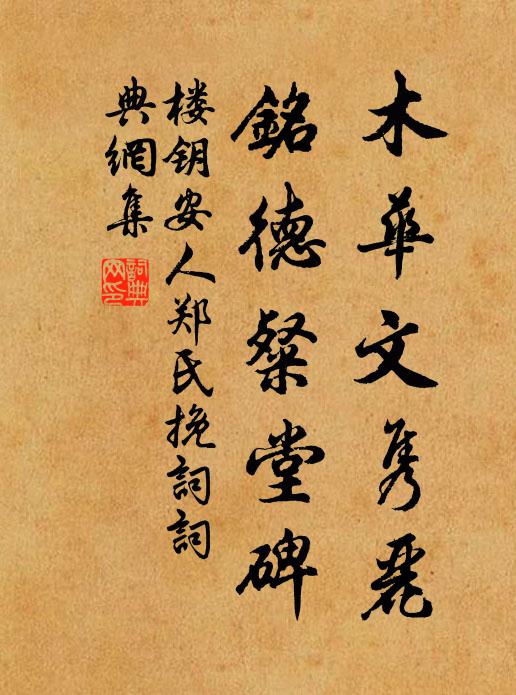 木華文隽麗
銘德粲堂碑
楼钥安人郑氏挽詞詞
典網集
詞典网印